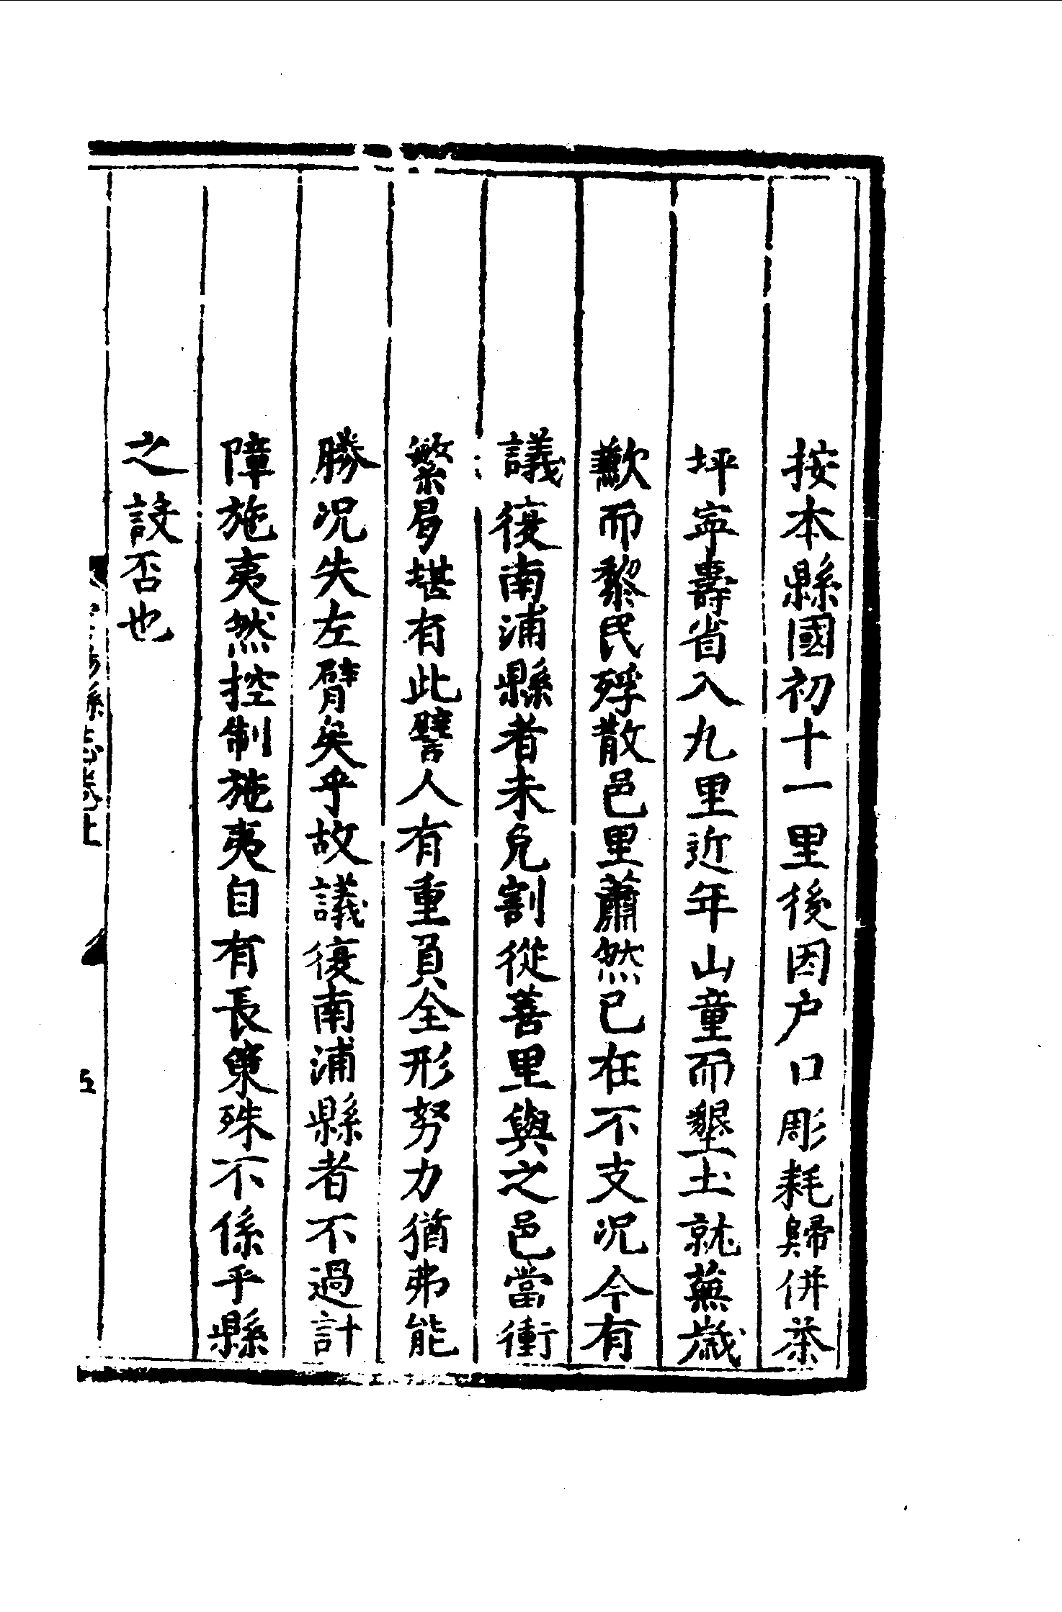 按本縣國初十一里後因户口彫耗歸併茶
坪寕壽省入九里近年山童而墾土就蕪歳
歉而黎民殍散邑里蕭然已在不支况今有
議復南浦縣者未免割從善里與之邑當衝
繁曷堪有此譬人有重負全形努力猶弗能
勝况失左臂矣乎故議復南浦縣者不過計
障施夷然控制施夷自有長策殊不係乎縣
之設否也
縣志卷上
五